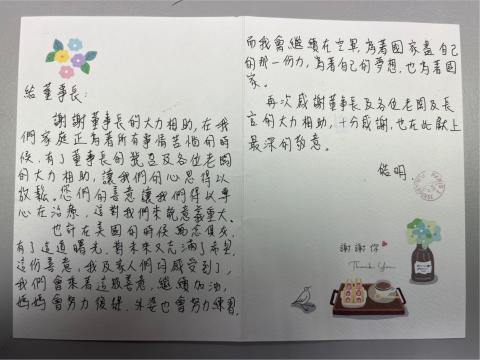 給董事長:
謝謝董事長的大力相助,在我
們家庭正為著所有事情苦惱的時
候,有了董事長的號召及各位老闆
的大力相助,讓我們的心思得以
放鬆。您們的善意讓我們得以專
心在治療,這對我們來說意義重大。
也許在美國的時候
有了這道曙光,對未來又充滿了希望,
這份善意,我及家人們均感受到了,
我們會乘著這股善意,繼續加油,
媽媽會努力復健,也會努力練習,
而我會繼續在空軍,為著國家盡自己
的那一份力,為著自己的夢想,也為著國
家。
再次感謝董事長及各位老闆及長
官的大力相助,十分感謝,也在此獻上
最深的敬意。
皓明
謝謝你
Thank You